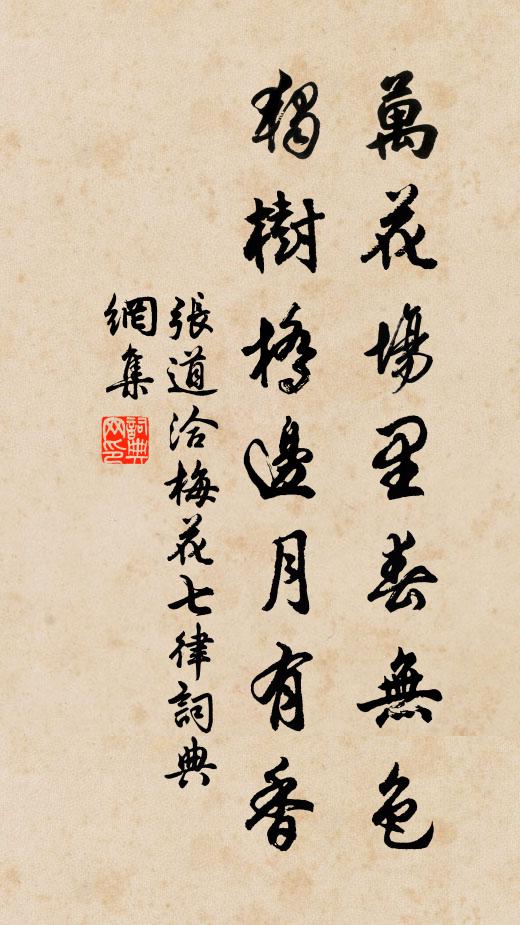 萬花場里春無色
獨樹橋邊月有香
張道洽梅花七律詞典
網集
詞典
网印